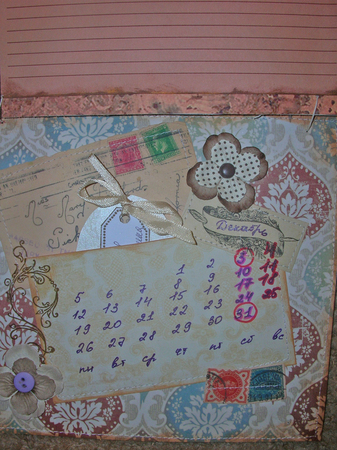 Декабрь
1 2 3 4
5 6 7 8 9 10 11
12 13 14 15 16 17 18
19 20 21 22 23 24 25
26 27 28 29 30 31
пн вт ср чт пт сб вс